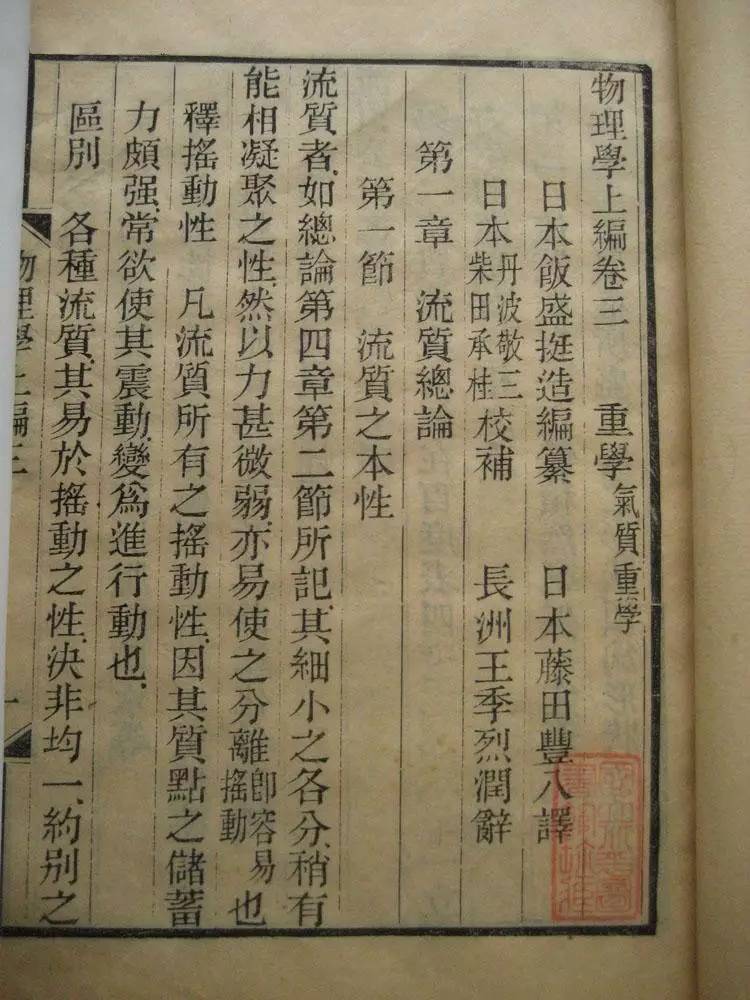 物理學上編卷三 重學 氣質重學
日本飯盛挺造編纂 日本藤田豐八譯
日本 丹波敬三 柴田承桂 校補 長洲王季烈潤辭
第一章 流質總論
第一節 流質之本性
流質者、如總論第四章第二節所記、其細小之各分、稍有
能相凝聚之性、然以力甚微弱、亦易使之分離 卽容易搖動 也
釋搖動性 凡流質所有之搖動性、因其質點之儲蓄
力頗强、常欲使其震動、變爲進行動也、
區別 各種流質、其易於搖動之性、決非均一、約別之
物理學上編三
一